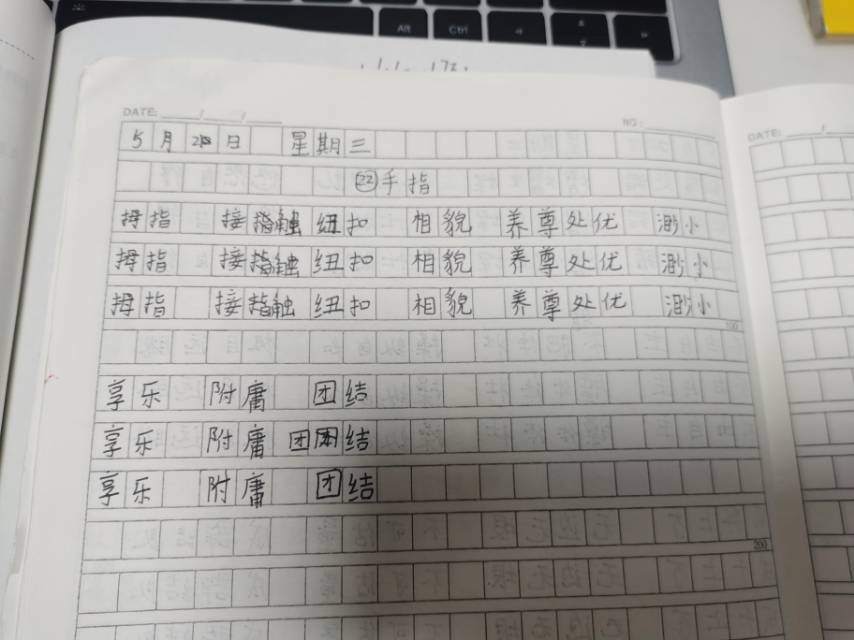 Alt Ctrl
DATE: / /
NO:
DATE: /
5月 日 星期三
㉒手指
拇指 接指触 纽扣 相貌 养尊处优 渺小
拇指 接指触 纽扣 相貌 养尊处优 渺小
拇指 接指触 纽扣 相貌 养尊处优 渺小
100
享乐 附庸 团结
享乐 附庸 团团结
享乐 附庸 团结
200